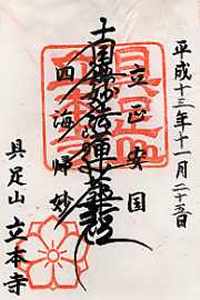 平成十三年十一月二十五日
立正安国
南無妙法蓮華経
四海帰妙
具足山 立本寺